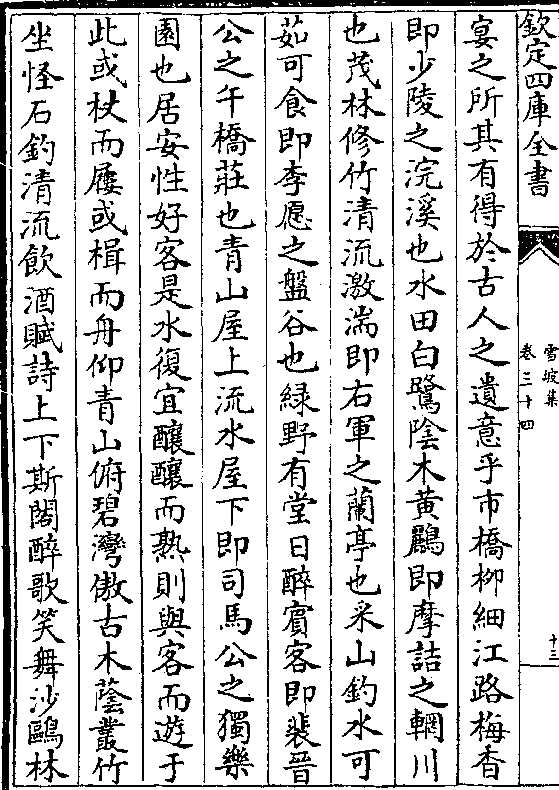 欽定四庫全書
雪坡集
卷三十四
十三
宴之所其有得於古人之遺意乎市橋柳細江路梅香
即少陵之浣溪也水田白鷺陰木黃鸝即摩詰之輞川
也茂林修竹清流激湍即右軍之蘭亭也采山釣水可
茹可食即李愿之盤谷也綠野有堂日醉賓客即裴晉
公之午橋莊也青山屋上流水屋下即司馬公之獨樂
園也居安性好客是水復宜釀釀而熟則與客而遊于
此或杖而屨或楫而舟仰青山俯碧灣傲古木蔭叢竹
坐怪石釣清流飲酒賦詩上下斯閣醉歌笑舞沙鷗林